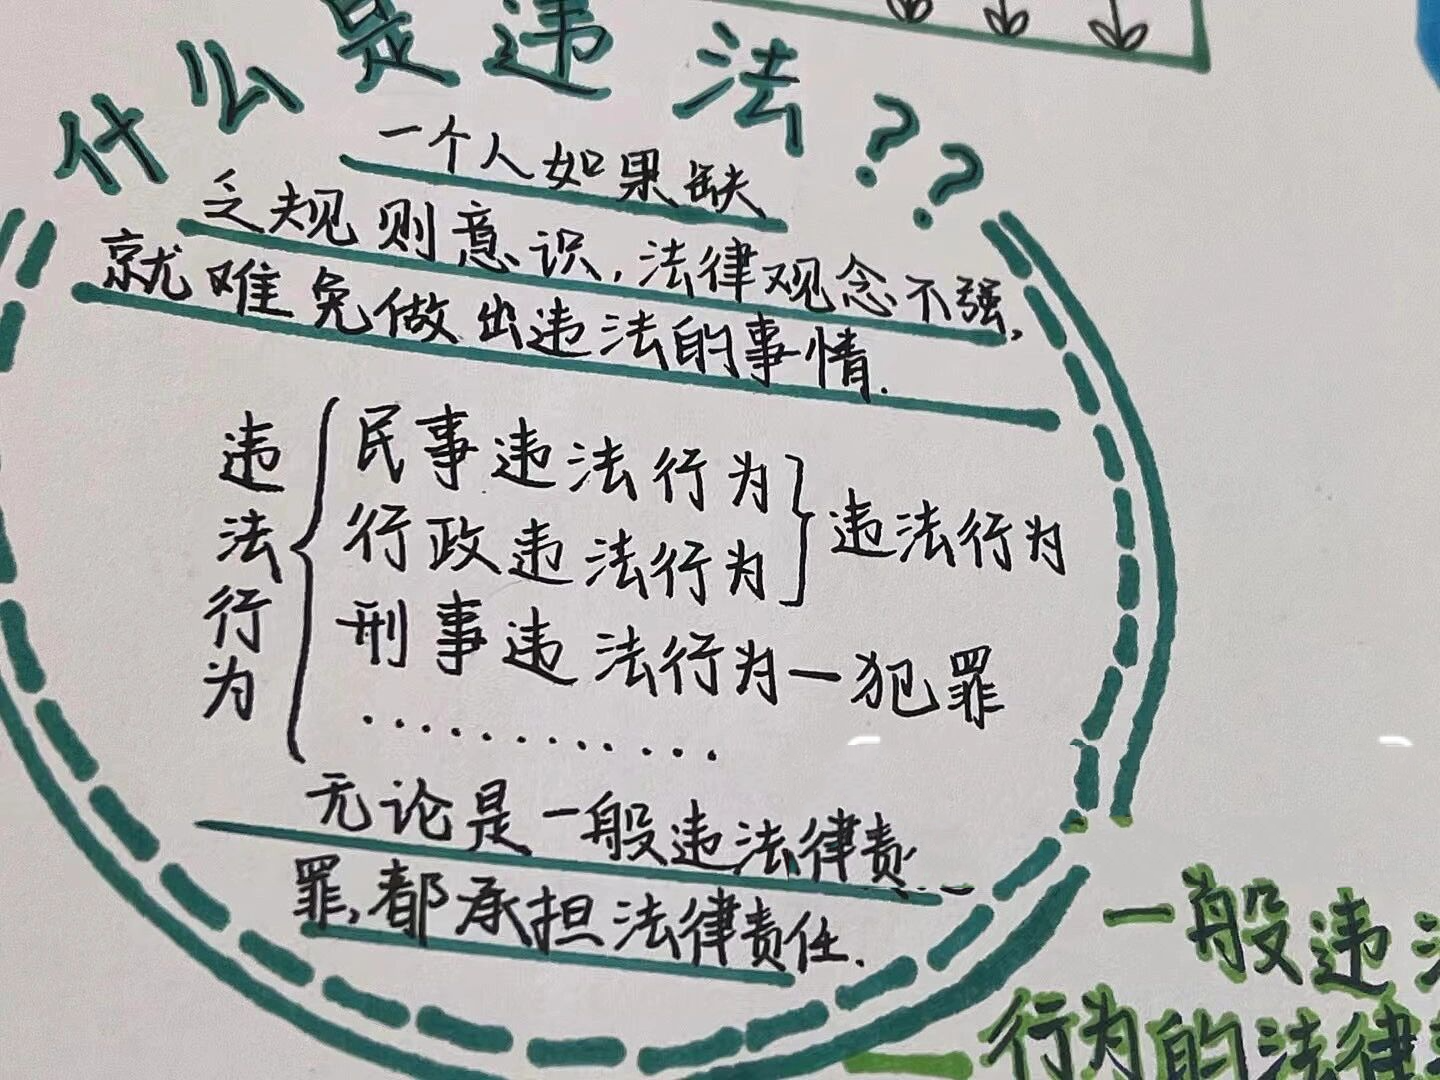 什么是违法??
一个人如果缺
乏规则意识,法律观念不强,
就难免做出违法的事情.
违法行为
民事违法行为
行政违法行为
违法行为
刑事违法行为一犯罪
............
无论是一般违法律责
罪,都承担法律责任.
一般违法
行为的法律